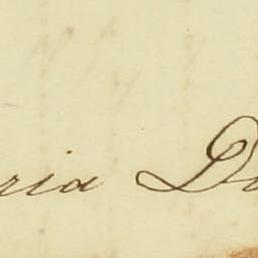 ria Do